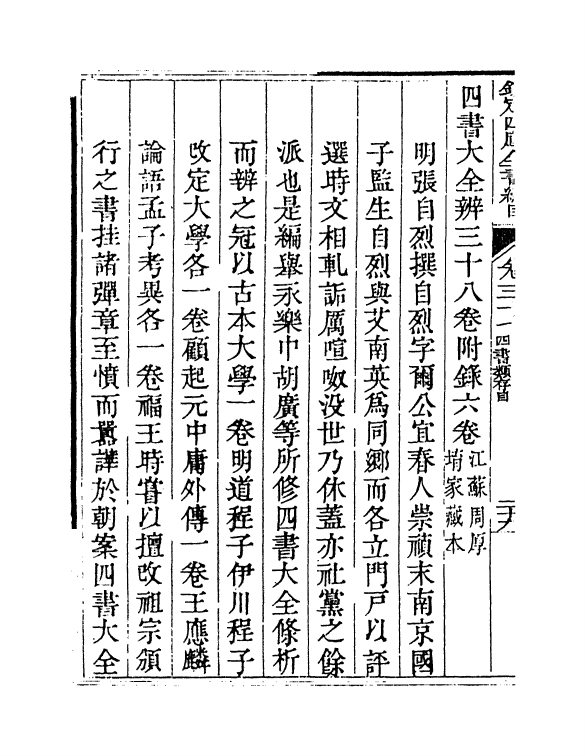 欽定四庫全書總目 卷三十一 四書類存目 二十六
四書大全辨三十八卷附錄六卷 江蘇周厚堉家藏本
明張自烈撰自烈字爾公宜春人崇禎末南京國
子監生自烈與艾南英為同鄉而各立門戶以評
選時文相軋詬厲喧呶没世乃休蓋亦社黨之餘
派也是編舉永樂中胡廣等所修四書大全條析
而辨之冠以古本大學一卷明道程子伊川程子
改定大學各一卷顧起元中庸外傳一卷王應麟
論語孟子考異各一卷福王時嘗以擅改祖宗頒
行之書挂諸彈章至憤而囂譁於朝案四書大全